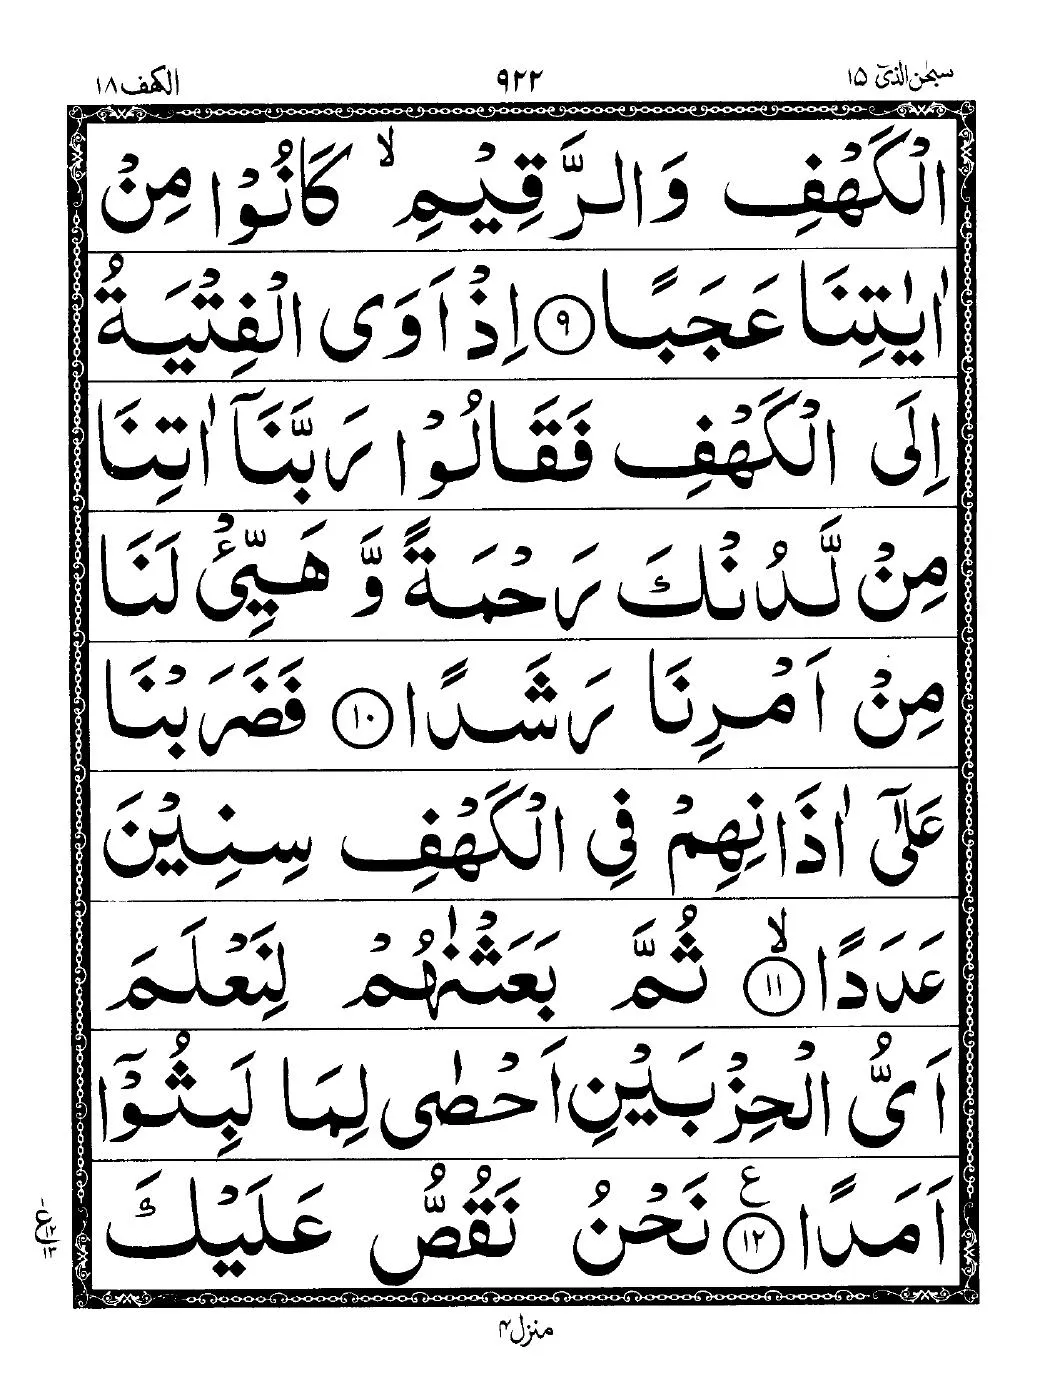 سبحٰن الذیٓ ۱۵ ۹۲۲ الکهف ۱۸
الْكَهْفِ وَالرَّقِيْمِ ۙ كَانُوْا مِنْ
اٰيٰتِنَا عَجَبًا ۹ اِذْ اَوَى الْفِتْيَةُ
اِلَى الْكَهْفِ فَقَالُوْا رَبَّنَآ اٰتِنَا
مِنْ لَّدُنْكَ رَحْمَةً وَّ هَيِّئْ لَنَا
مِنْ اَمْرِنَا رَشَدًا ۱۰ فَضَرَبْنَا
عَلٰٓى اٰذَانِهِمْ فِي الْكَهْفِ سِنِيْنَ
عَدَدًا ۙ ۱۱ ثُمَّ بَعَثْنٰهُمْ لِنَعْلَمَ
اَىُّ الْحِزْبَيْنِ اَحْصٰى لِمَا لَبِثُوْٓا
اَمَدًا ع ۱۲ نَحْنُ نَقُصُّ عَلَيْكَ
ع ۱ ۱۲ ۱۳
منزل ۴